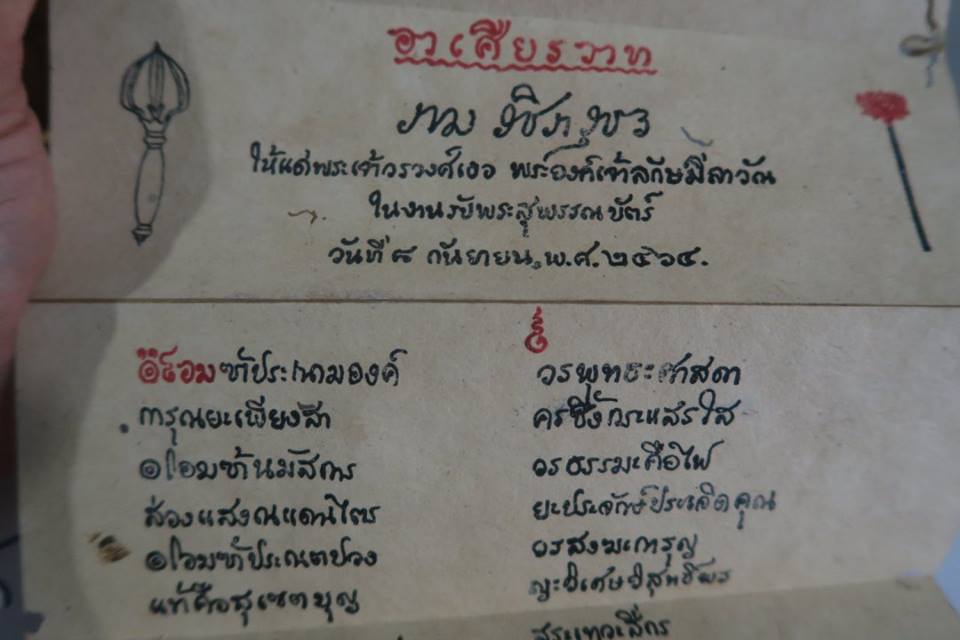 อาเศียรวาท
ให้แด่พระเจ้าวรวงศ์เธอ พระองค์เจ้าลักษมีลาวัณ
ในงานรับพระสุพรรณบัตร์
วันที่ ๘ กันยายน พ.ศ. ๒๔๖๔.
ประนามองค์ วรพุทธะศาสดา
การุณยะเพียงสา ครซึ่งกระแสร์ใส
๏ โอมข้านมัสการ วรธรรมะคือไฟ
ส่องแสงณแดนไตร ยะประจักษ์ประเสิดคุณ
๏ โอมข้าประณตปวง วรสงฆะการุญ
แท้คือสุเขตบุญ ญะวิเศษวิสุทธิพร